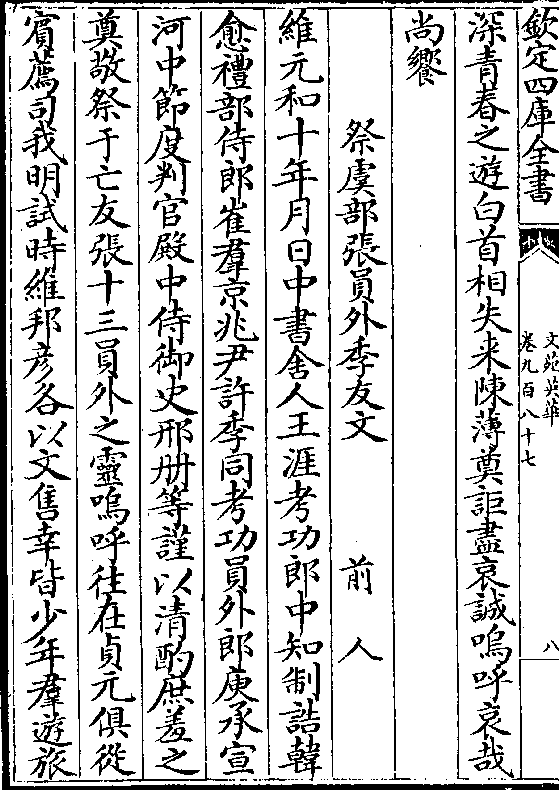 欽定四庫全書
文苑英華
卷九百八十七
八
深青春之遊白首相失来陳薄奠詎盡哀誠嗚呼哀哉
尚饗
祭虞部張員外季友文 前人
維元和十年月日中書舍人王涯考功郎中知制誥韓
愈禮部侍郎崔羣京兆尹許季同考功員外郎庚承宣
河中節度判官殿中侍御史邢册等謹以清酌庶羞之
奠敬祭于亡友張十三員外之靈嗚呼往在貞元俱從
賔薦司我明試時維邦彦各以文售幸皆少年羣遊旅